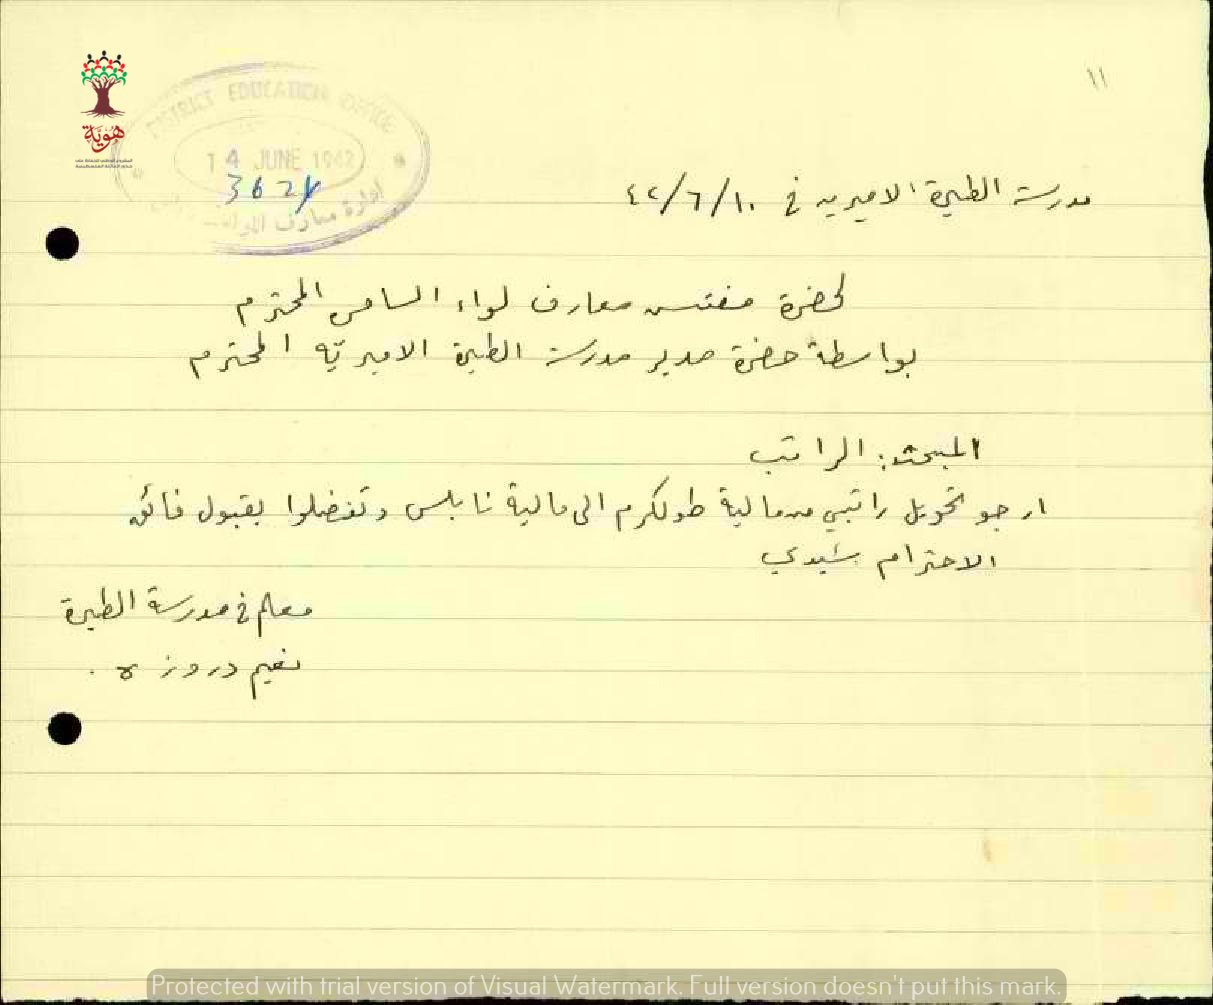 ١١
DISTRICT EDUCATION OFFICE
14 JUNE 1942
362
ادارة معارف
هُوِيَّة
مدرسة الطيرة الاميرية في ١٠/٦/٤٢
لحضرة مفتش معارف لواء السامره المحترم
بواسطة حضرة مدير مدرسة الطيرة الاميريّه المحترم
المبحث: الراتب
ارجو تحويل راتبي من مالية طولكرم الى مالية نابلس وتفضلوا بقبول فائق
الاحترام سيدي
معلم في مدرسة الطيرة
نعيم دروزه .
Protected with trial version of Visual Watermark. Full version doesn't put this mark.